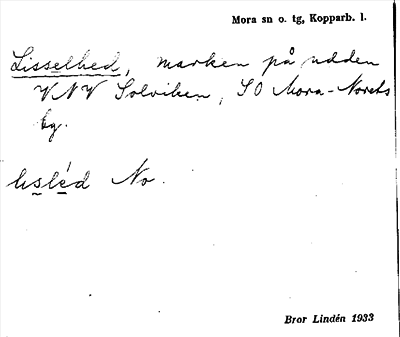 Mora sn o. tg, Kopparb. l.
Lisselhed, marken på udden
VNV Solviken, SO Mora-Norets
by.
lɩslé̱d No.
Bror Lindén 1933